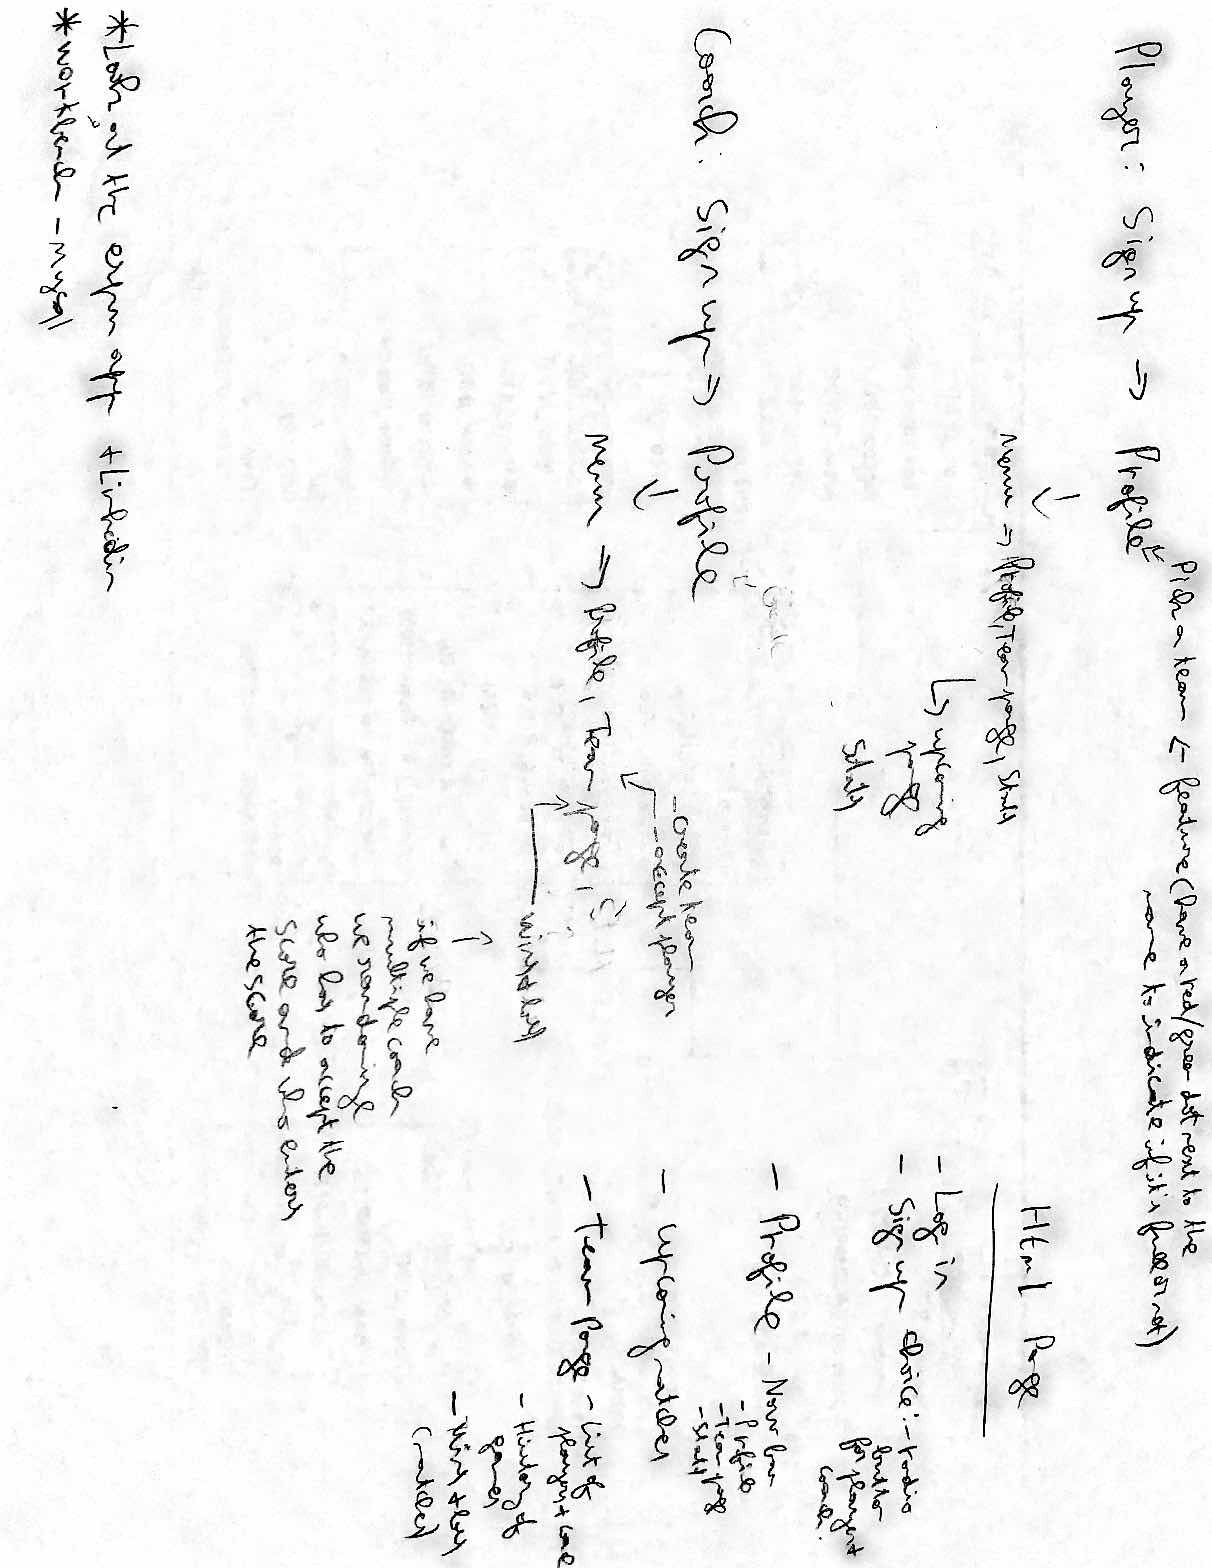 Pick a team ← feature (have a red/green dot next to the
name to indicate if it's full or not)
Player: Sign up → Profile
menu → Profile, Team page, Stats
↳ upcoming
page
Stats
Coach: Sign up → Profile
- create team
- accept player
menu → Profile, Team page,
wins + loss
if we have
multiple coach
we randomize
who has to accept the
score and who enters
the score
Html Page
- Log in
- Sign up choice: - radio
button
for player +
coach.
- Profile - Nav bar
- Profile
- Team page
- Stats
- Upcoming matches
- Team Page - List of
players +
- History of
games
- Wins + loss
(matches)
*Look at the espn app + Linkedin
*workbench - mysql